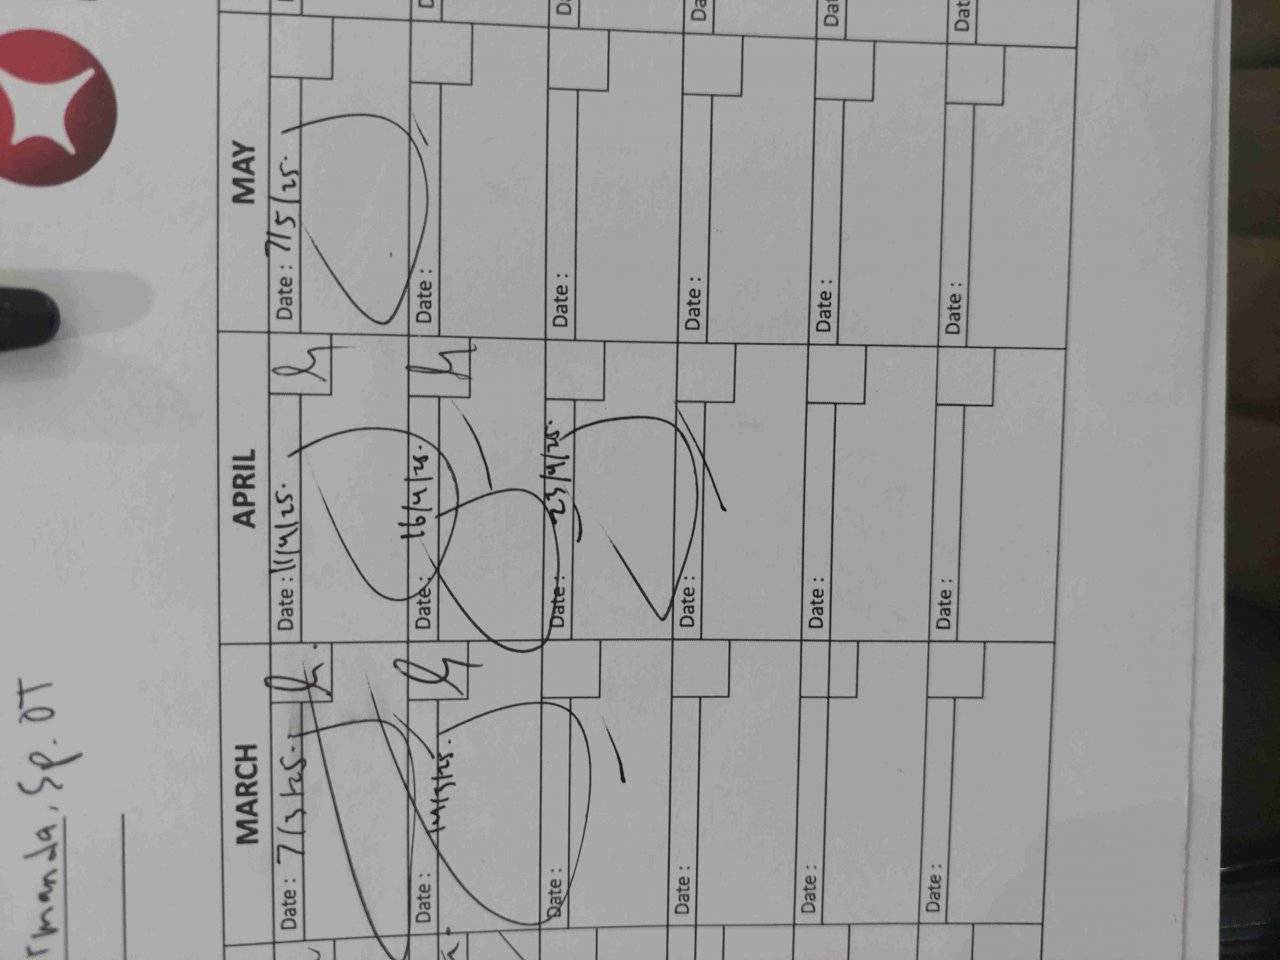 rmanda, Sp. OT
MARCH APRIL MAY
Date : 7/3/25. Date : 11/4/25. Date : 7/5/25.
Date : 14/3/25. Date : 16/4/25. Date :
Date : Date : 23/4/25. Date :
Date : Date : Date :
Date : Date : Date :
Date : Date : Date :